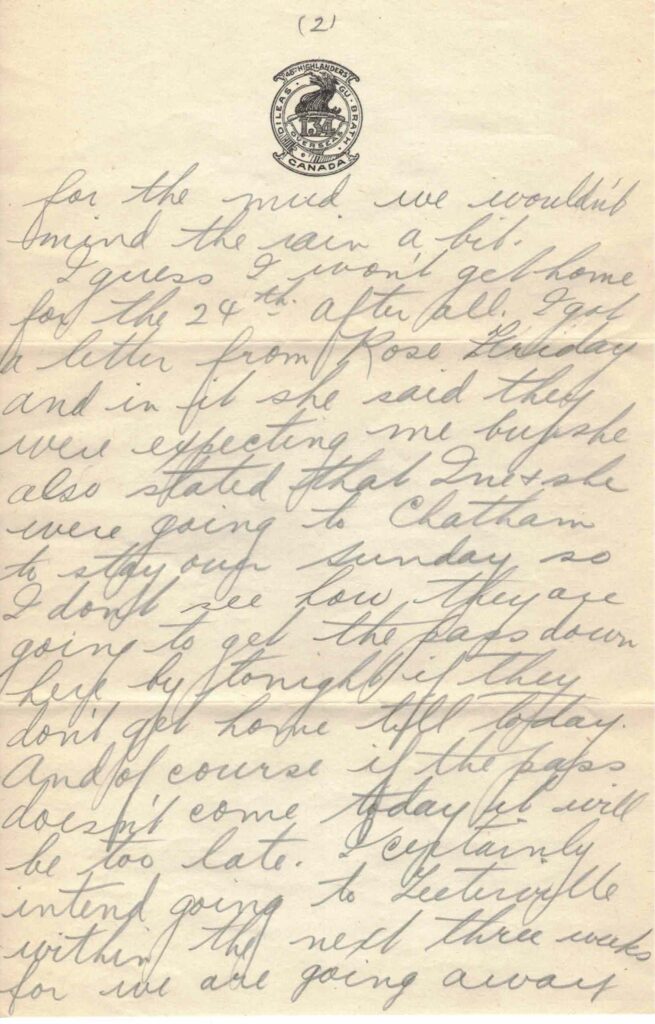 (2)
48TH HIGHLANDERS
DILEAS GU BRATH
134
OVERSEAS
CANADA
for the mud we wouldn't
mind the rain a bit.
I guess I won't get home
for the 24th. after all. I got
a letter from Rose Friday
and in it she said they
were expecting me but she
also stated that Ine & she
were going to Chatham
to stay over Sunday so
I don't see how they are
going to get the pass down
here by tonight if they
don't get home till today.
And of course if the pass
doesn't come today it will
be too late. I certainly
intend going to Teeterville
within the next three weeks
for we are going away